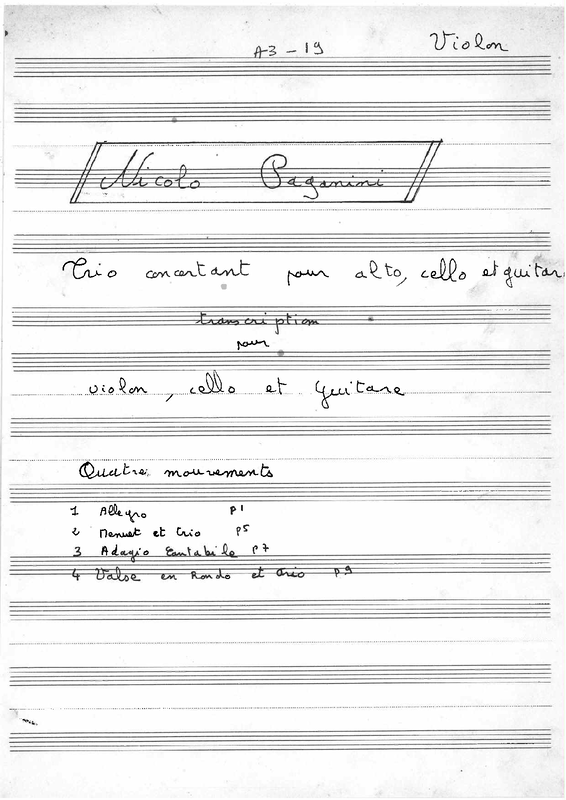 A3 - 19
Violon
Nicolo Paganini
Trio concertant pour alto, cello et guitar
transcription
pour
violon, cello et Guitare
Quatre mouvements
1 Allegro p1
2 Menuet et Trio p5
3 Adagio Cantabile p7
4 Valse en Rondo et Trio p.9